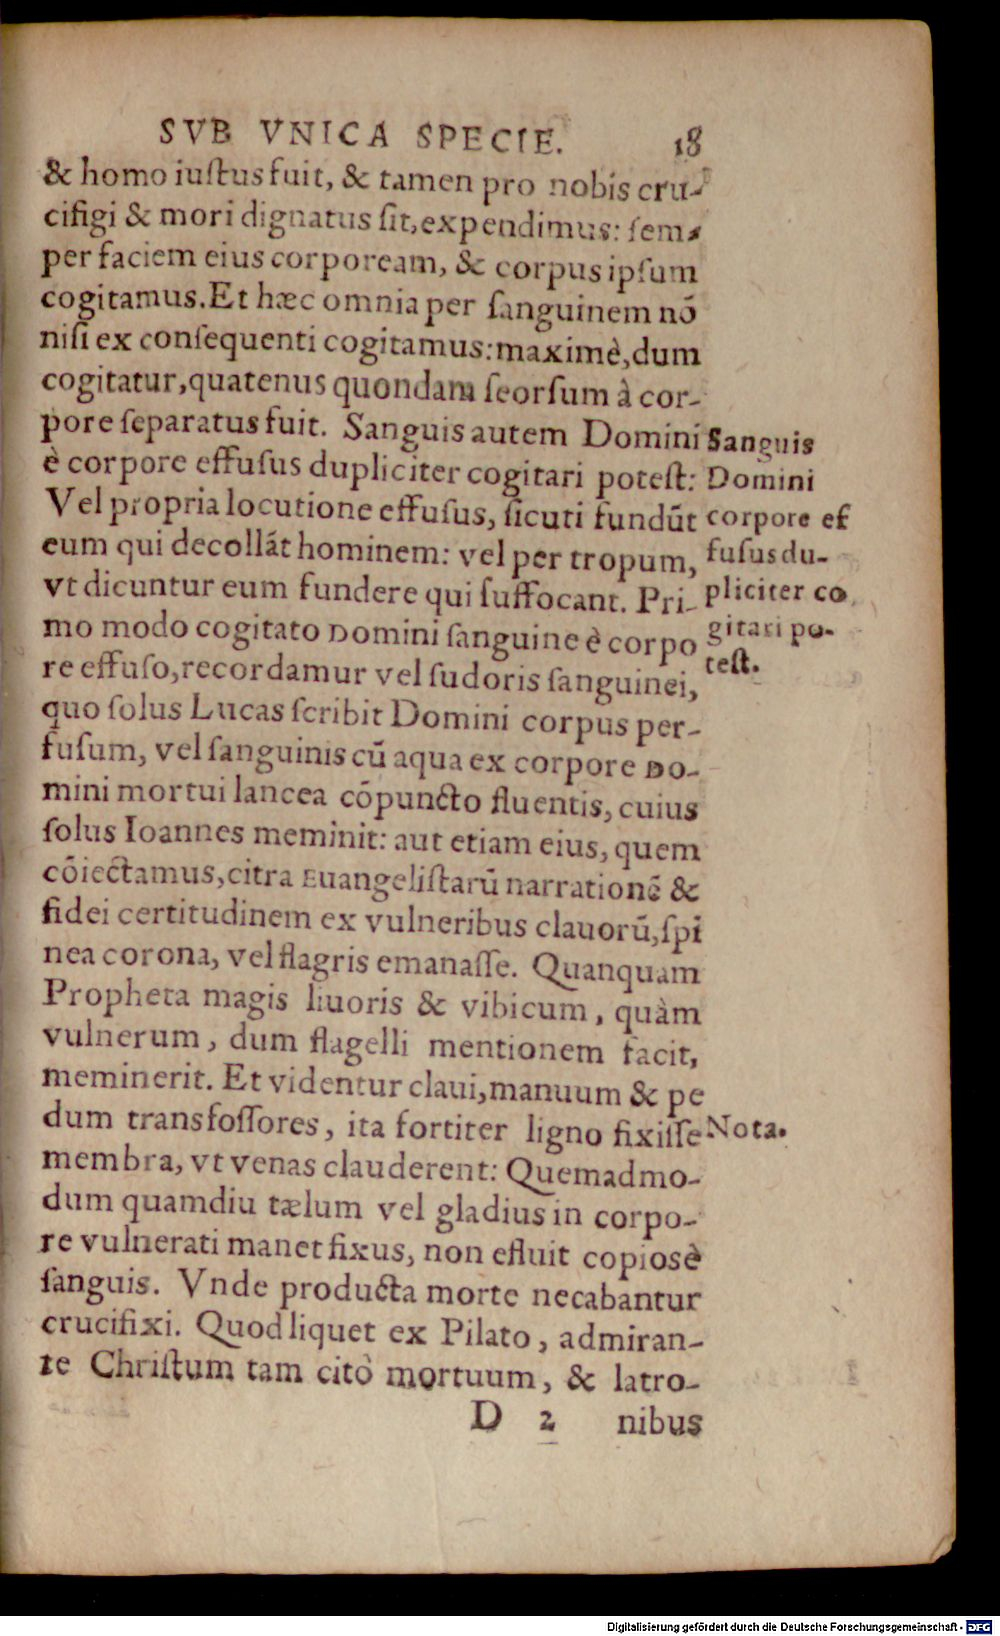 SVB VNICA SPECIE. 18
& homo iuſtus fuit, & tamen pro nobis cru-
cifigi & mori dignatus ſit, expendimus: ſem-
per faciem eius corpoream, & corpus ipſum
cogitamus. Et hæc omnia per ſanguinem nō
niſi ex conſequenti cogitamus: maximè, dum
cogitatur, quatenus quondam ſeorſum à cor-
pore ſeparatus fuit. Sanguis autem Domini
è corpore effuſus dupliciter cogitari poteſt:
Vel propria locutione effuſus, ſicuti fundūt
eum qui decollāt hominem: vel per tropum,
vt dicuntur eum fundere qui ſuffocant. Pri-
mo modo cogitato Domini ſanguine è corpo
re effuſo, recordamur vel ſudoris ſanguinei,
quo ſolus Lucas ſcribit Domini corpus per-
fuſum, vel ſanguinis cū aqua ex corpore Do-
mini mortui lancea cōpuncto fluentis, cuius
ſolus Ioannes meminit: aut etiam eius, quem
cōiectamus, citra Euangeliſtarū narrationē &
fidei certitudinem ex vulneribus clauorū, ſpi
nea corona, vel flagris emanaſſe. Quanquam
Propheta magis liuoris & vibicum, quàm
vulnerum, dum flagelli mentionem facit,
meminerit. Et videntur claui, manuum & pe
dum transfoſſores, ita fortiter ligno fixiſſe
membra, vt venas clauderent: Quemadmo-
dum quamdiu tælum vel gladius in corpo-
re vulnerati manet fixus, non efluit copiosè
ſanguis. Vnde producta morte necabantur
crucifixi. Quod liquet ex Pilato, admiran-
te Chriſtum tam citò mortuum, & latro-
D 2 nibus
Sanguis
Domini
corpore ef
fuſus du-
pliciter co
gitari po-
teſt.
Nota.
Digitalisierung gefördert durch die Deutsche Forschungsgemeinschaft - DFG